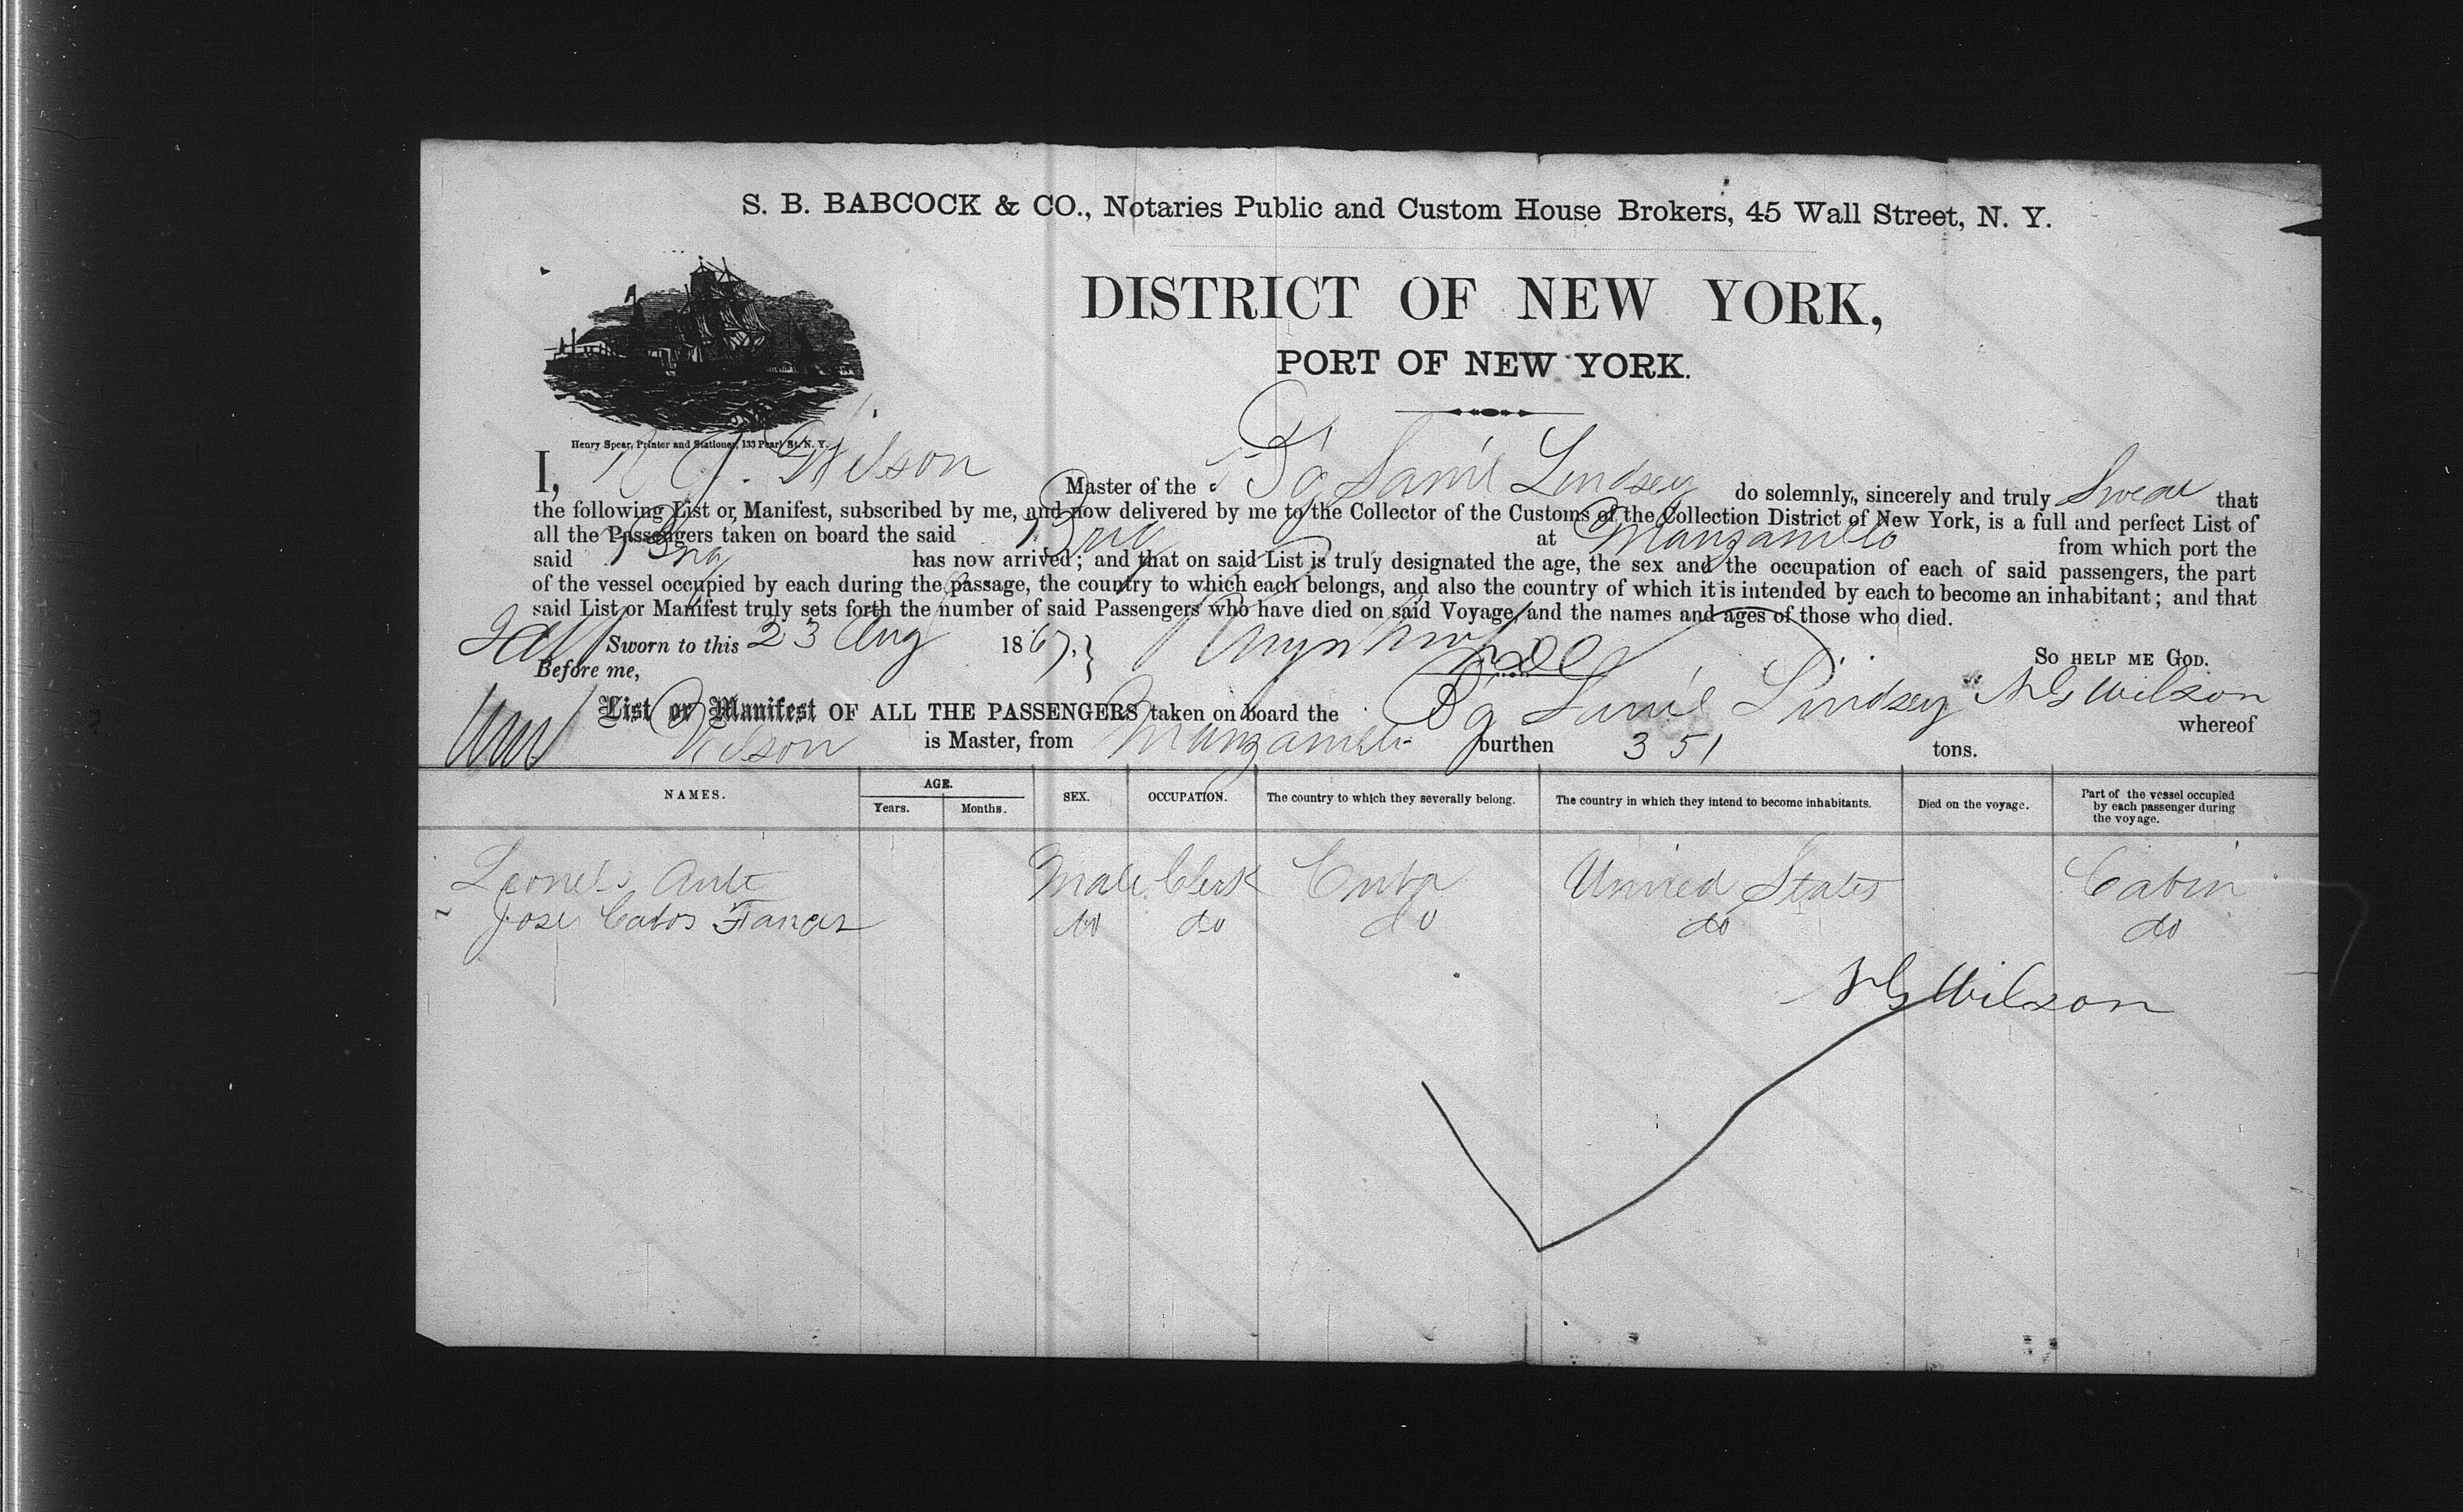 S. B. BABCOCK & CO., Notaries Public and Custom House Brokers, 45 Wall Street, N. Y.
DISTRICT OF NEW YORK,
PORT OF NEW YORK.
Henry Spear, Printer and Stationer, 133 Pearl St. N. Y.
I, N G. Wilson Master of the Bg Saml Lindsey do solemnly, sincerely and truly Swear that
the following List or Manifest, subscribed by me, and now delivered by me to the Collector of the Customs of the Collection District of New York, is a full and perfect List of
all the Passengers taken on board the said Brig at Manzanillo from which port the
said Brig has now arrived; and that on said List is truly designated the age, the sex and the occupation of each of said passengers, the part
of the vessel occupied by each during the passage, the country to which each belongs, and also the country of which it is intended by each to become an inhabitant; and that
said List or Manifest truly sets forth the number of said Passengers who have died on said Voyage, and the names and ages of those who died.
Sworn to this 23 Aug 1867. } SO HELP ME GOD.
Before me,
N G Wilson
List or Manifest OF ALL THE PASSENGERS taken on board the Bg Saml Lindsey whereof
Wilson is Master, from Manzanillo burthen 351 tons.
NAMES. AGE. Years. Months. SEX. OCCUPATION. The country to which they severally belong. The country in which they intend to become inhabitants. Died on the voyage. Part of the vessel occupied by each passenger during the voyage.
Male Clerk Cuba United States Cabin
Jose do do do do do
N G Wilson